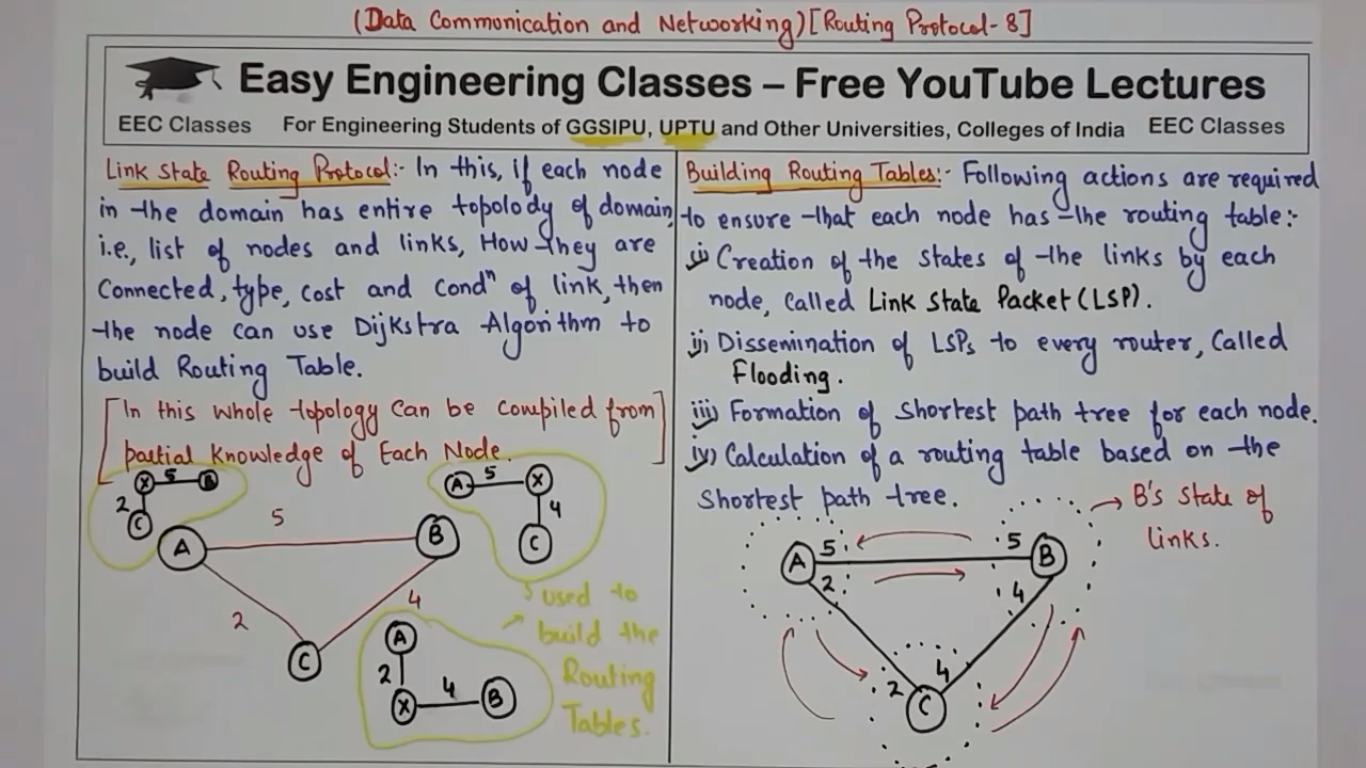 (Data Communication and Networking) [Routing Protocol-8]
Easy Engineering Classes – Free YouTube Lectures
EEC Classes For Engineering Students of GGSIPU, UPTU and Other Universities, Colleges of India EEC Classes
Link State Routing Protocol:- In this, if each node
in the domain has entire topolody of domain,
i.e., list of nodes and links, How they are
Connected, type, cost and condⁿ of link, then
the node can use Dijkstra Algorithm to
build Routing Table.
[In this whole topology can be compiled from
partial knowledge of Each Node.]
X 5 B
2
C
A 5 X
4
C
A 5 B
2 4
C
A
2
X 4 B
used to
build the
Routing
Tables.
Building Routing Tables:- Following actions are required
to ensure that each node has the routing table:-
i) Creation of the states of the links by each
node, called Link State Packet (LSP).
ii) Dissemination of LSPs to every router, Called
Flooding.
iii) Formation of Shortest path tree for each node.
iv) Calculation of a routing table based on the
Shortest path tree.
B's State of
links.
A 5 5 B
2 4
2 4
C